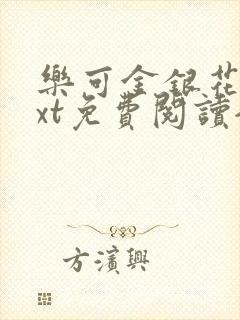 樂可金銀花
xt免費閱讀
方濱興